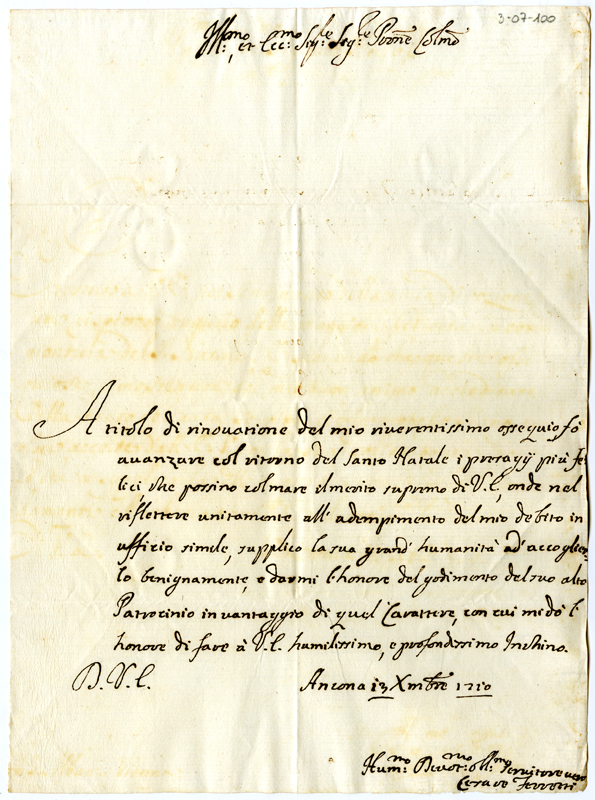 3-07-100
Ill:mo, et Ecc:mo Sig:re Sig:re Prōne Colmō
A titolo di rinovatione del mio riverentissimo ossequio fò
avanzare col ritorno del Santo Natale i presagij più fe-
lici, che possino colmare il merito supremo di V.E., onde nel
riflettere unitamente all' adempimento del mio debito in
ufficio simile, supplico la sua grand' humanità ad' accoglier-
lo benignamente, e darmi l'honore del godimento del suo alto
Patrocinio in vantaggio di quel Carattere, con cui mi dò l'
honore di fare à V.E. humilissimo, e profondissimo Inchino.
D. V. E. Ancona 13 Xmbre 1710
Hum:mo Devot:mo Obl:mo Servitore vero
Cesare Ferretti